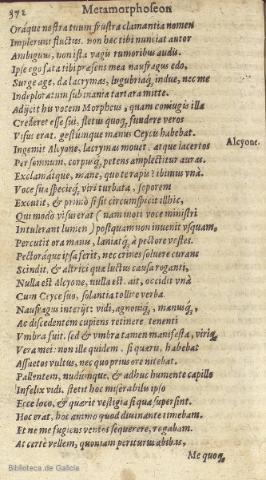 372 Metamorphoseon
Oráque nostra tuum frustra clamantia nomen
Implerunt fluctus. non hæc tibi nunciat autor
Ambiguus, non ista vagis rumoribus audis.
Ipse ego fata tibi præsens mea naufragus edo,
Surge age, da lacrymas, lugubriáq; indue, nec me
Indeploratum sub inania tartara mitte.
Adijcit his vocem Morpheus, quam coniugis illa
Crederet esse sui, fletus quoq; fundere veros
Visus erat. gestumque manus Ceycis habebat.
Ingemit Alcyone, lacrymas mouet. atque lacertos
Alcyone.
Per somnum, corpusq; petens amplectitur auras.
Exclamátque, mane, quo te rapis? ibimus vnà.
Voce sua specieq; viri turbata, soporem
Excutit, & primò si sit circunspicit illhic,
Qui modò visus erat (nam moti voce ministri
Intulerant lumen) postquam non inuenit vsquam,
Percutit ora manu, laniatq; à pectore vestes.
Pectoráque ipsa ferit, nec crines soluere curans
Scindit, & altrici quæ luctus causa roganti,
Nulla est Alcyone, nulla est. ait, occidit vnà
Cum Ceyce suo, solantia tollite verba.
Naufragus interijt: vidi, agnouíq; , manusq;,
Ac discedentem cupiens retinere tenenti
Vmbra fuit. sed & vmbra tamen manifesta, viriq;
Vera mei: non ille quidem. si quæris, habebat
Assuetos vultus, nec quo prius ore nitebat.
Pallentem, nudumque, & adhuc humente capillo
Infelix vidi. stetit hoc miserabilis ipso
Ecce loco, & quærit vestigia si qua supersint.
Hoc erat, hoc animo quod diuinante timebam.
Et ne me fugiens ventos sequerere, rogabam.
At certè vellem, quoniam periturus abibas,
Me quoq;
Biblioteca de Galicia